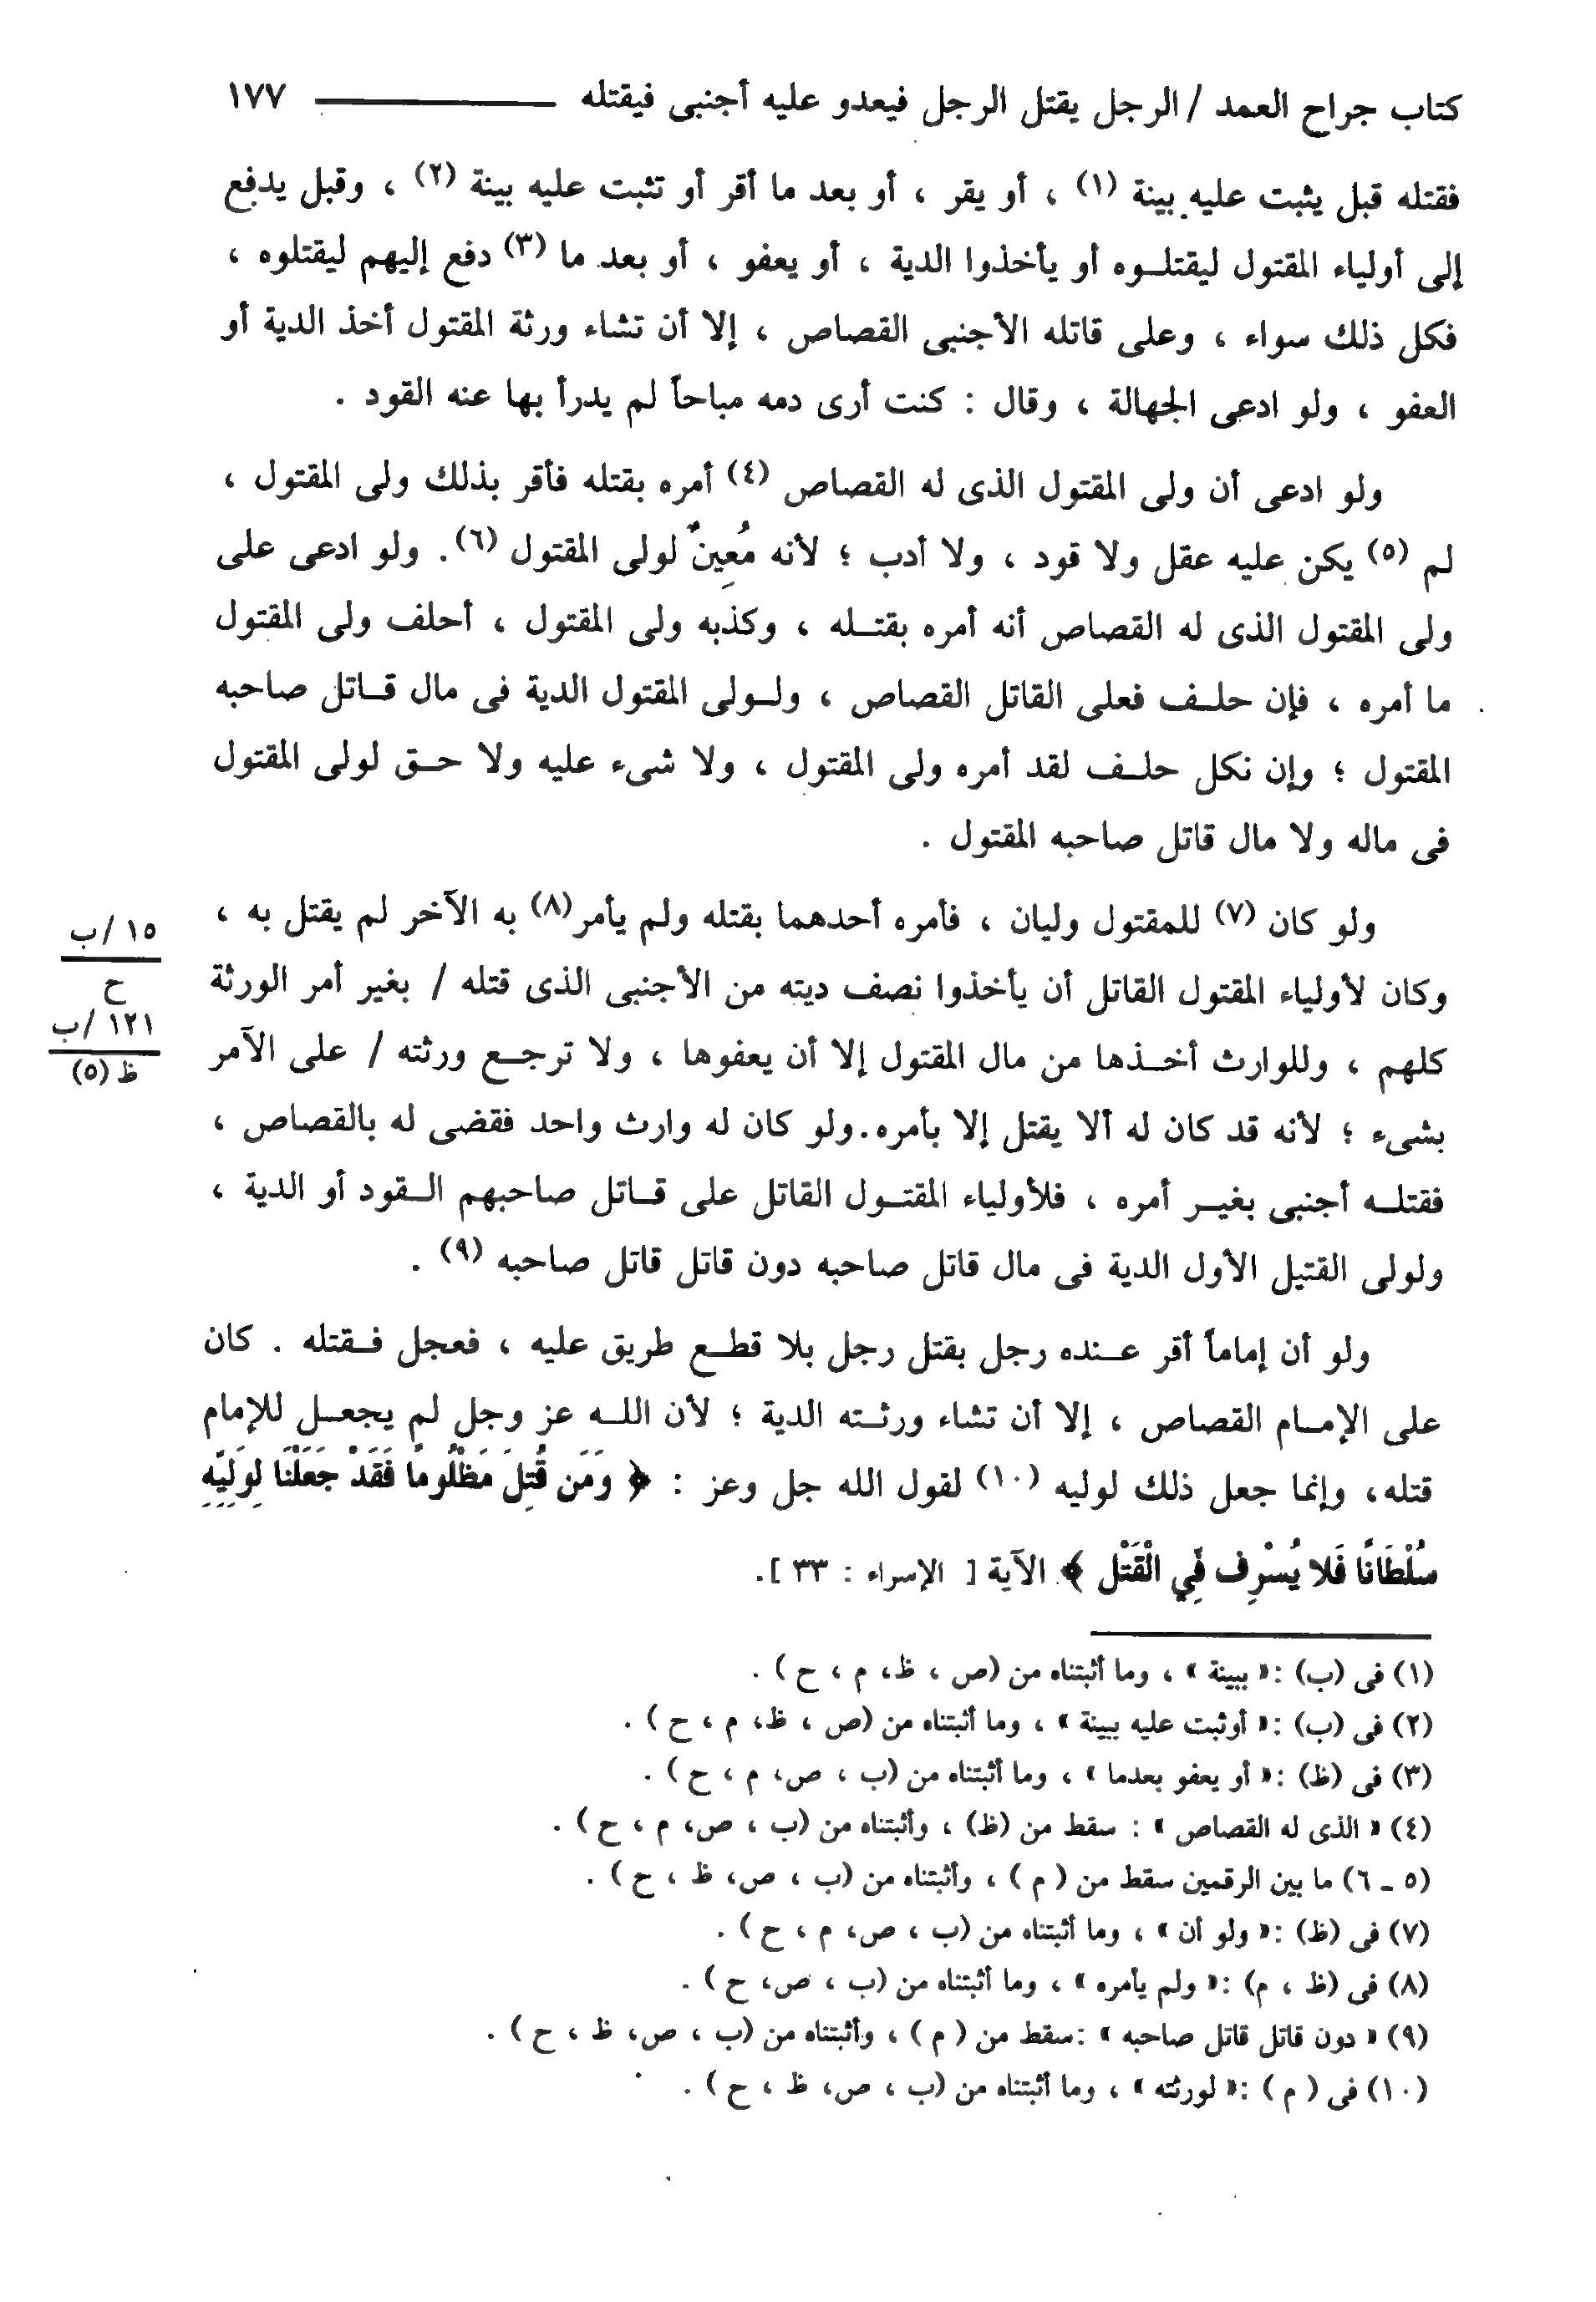 كتاب جراح العمد / الرجل يقتل الرجل فيعدو عليه أجنبى فيقتله ١٧٧
فقتله قبل يثبت عليه بينة (١) ، أو يقر ، أو بعد ما أقر أو تثبت عليه بينة (٢) ، وقبل يدفع
إلى أولياء المقتول ليقتلـوه أو يأخذوا الدية ، أو يعفو ، أو بعد ما (٣) دفع إليهم ليقتلوه ،
فكل ذلك سواء ، وعلى قاتله الأجنبى القصاص ، إلا أن تشاء ورثة المقتول أخذ الدية أو
العفو ، ولو ادعى الجهالة ، وقال : كنت أرى دمه مباحاً لم يدرأ بها عنه القود .
ولو ادعى أن ولى المقتول الذى له القصاص (٤) أمره بقتله فأقر بذلك ولى المقتول ،
لم (٥) يكن عليه عقل ولا قود ، ولا أدب ؛ لأنه مُعِينٌ لولى المقتول (٦). ولو ادعى على
ولى المقتول الذى له القصاص أنه أمره بقتـله ، وكذبه ولى المقتول ، أحلف ولى المقتول
ما أمره ، فإن حلـف فعلى القاتل القصاص ، ولـولى المقتول الدية فى مال قـاتل صاحبه
المقتول ؛ وإن نكل حلـف لقد أمره ولى المقتول ، ولا شىء عليه ولا حـق لولى المقتول
فى ماله ولا مال قاتل صاحبه المقتول .
ولو كان (٧) للمقتول وليان ، فأمره أحدهما بقتله ولم يأمر(٨) به الآخر لم يقتل به ،
وكان لأولياء المقتول القاتل أن يأخذوا نصف ديته من الأجنبى الذى قتله / بغير أمر الورثة
كلهم ، وللوارث أخـذها من مال المقتول إلا أن يعفوها ، ولا ترجـع ورثته / على الآمر
بشىء ؛ لأنه قد كان له ألا يقتل إلا بأمره.ولو كان له وارث واحد فقضى له بالقصاص ،
فقتلـه أجنبى بغيـر أمره ، فلأولياء المقتـول القاتل على قـاتل صاحبهم الـقود أو الدية ،
ولولى القتيل الأول الدية فى مال قاتل صاحبه دون قاتل قاتل صاحبه (٩) .
ولو أن إماماً أقر عـنده رجل بقتل رجل بلا قطـع طريق عليه ، فعجل فـقتله . كان
على الإمـام القصاص ، إلا أن تشاء ورثـته الدية ؛ لأن اللـه عز وجل لم يجعـل للإمام
قتله، وإنما جعل ذلك لوليه (١٠) لقول الله جل وعز : ﴿ وَمَن قُتِلَ مَظْلُومًا فَقَدْ جَعَلْنَا لِوَلِيِّهِ
سُلْطَانًا فَلا يُسْرِف فِّي الْقَتْلِ ﴾ الآية [ الإسراء : ٣٣ ].
١٥ /ب
ح
١٢١ /ب
ظ (٥)
(١) فى (ب) :« ببينة » ، وما أثبتناه من (ص ، ظ، م ، ح ) .
(٢) فى (ب) :« أوثبت عليه ببينة » ، وما أثبتناه من (ص ، ظ، م ، ح ) .
(٣) فى (ظ) :« أو يعفو بعدما » ، وما أثبتناه من (ب ، ص، م ، ح ) .
(٤) « الذى له القصاص » : سقط من (ظ) ، وأثبتناه من (ب ، ص، م ، ح ) .
(٥ ـ ٦) ما بين الرقمين سقط من ( م ) ، وأثبتناه من (ب ، ص، ظ ، ح ) .
(٧) فى (ظ) :« ولو أن » ، وما أثبتناه من (ب ، ص، م ، ح ) .
(٨) فى (ظ ، م) :« ولم يأمره » ، وما أثبتناه من (ب ، ص، ح ) .
(٩) « دون قاتل قاتل صاحبه » :سقط من ( م ) ، وأثبتناه من (ب ، ص، ظ ، ح ) .
(١٠) فى ( م ) :« لورثته » ، وما أثبتناه من (ب ، ص، ظ ، ح ) .